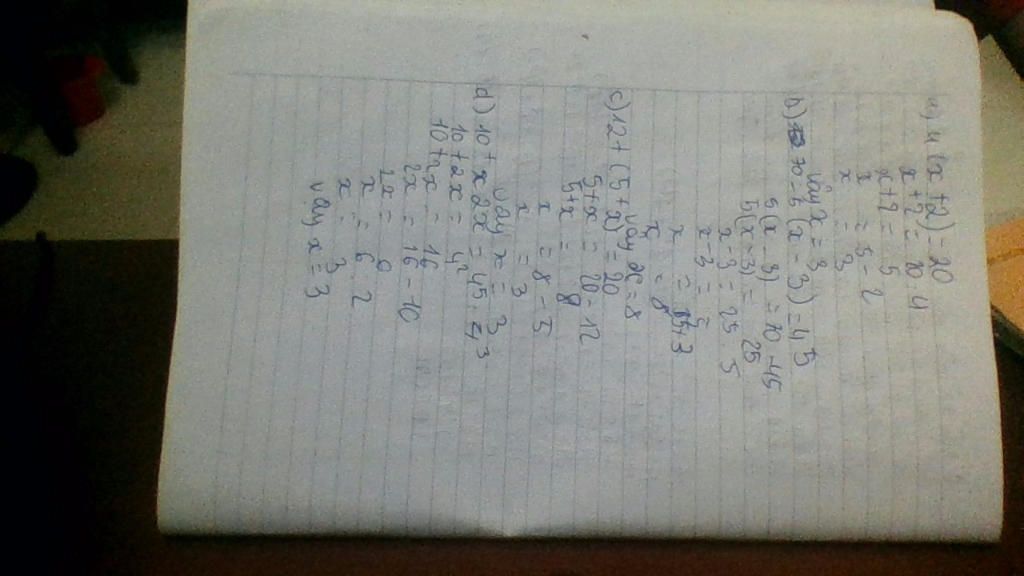 a) 4 (x + 2) = 20
x + 2 = 20 : 4
x + 2 = 5
x = 5 - 2
x = 3
vậy x = 3
b) 70 - 5 (x - 3) = 45
5 (x - 3) = 70 - 45
5 (x - 3) = 25
x - 3 = 25 : 5
x - 3 = 5
x = 5 + 3
x = 8
vậy x = 8
c) 12 + (5 + x) = 20
5 + x = 20 - 12
5 + x = 8
x = 8 - 5
x = 3
vậy x = 3
d) 10 + 2x = 45 : 43
10 + 2x = 4²
10 + 2x = 16
2x = 16 - 10
2x =
x = 6 : 2
x = 3
vậy x = 3